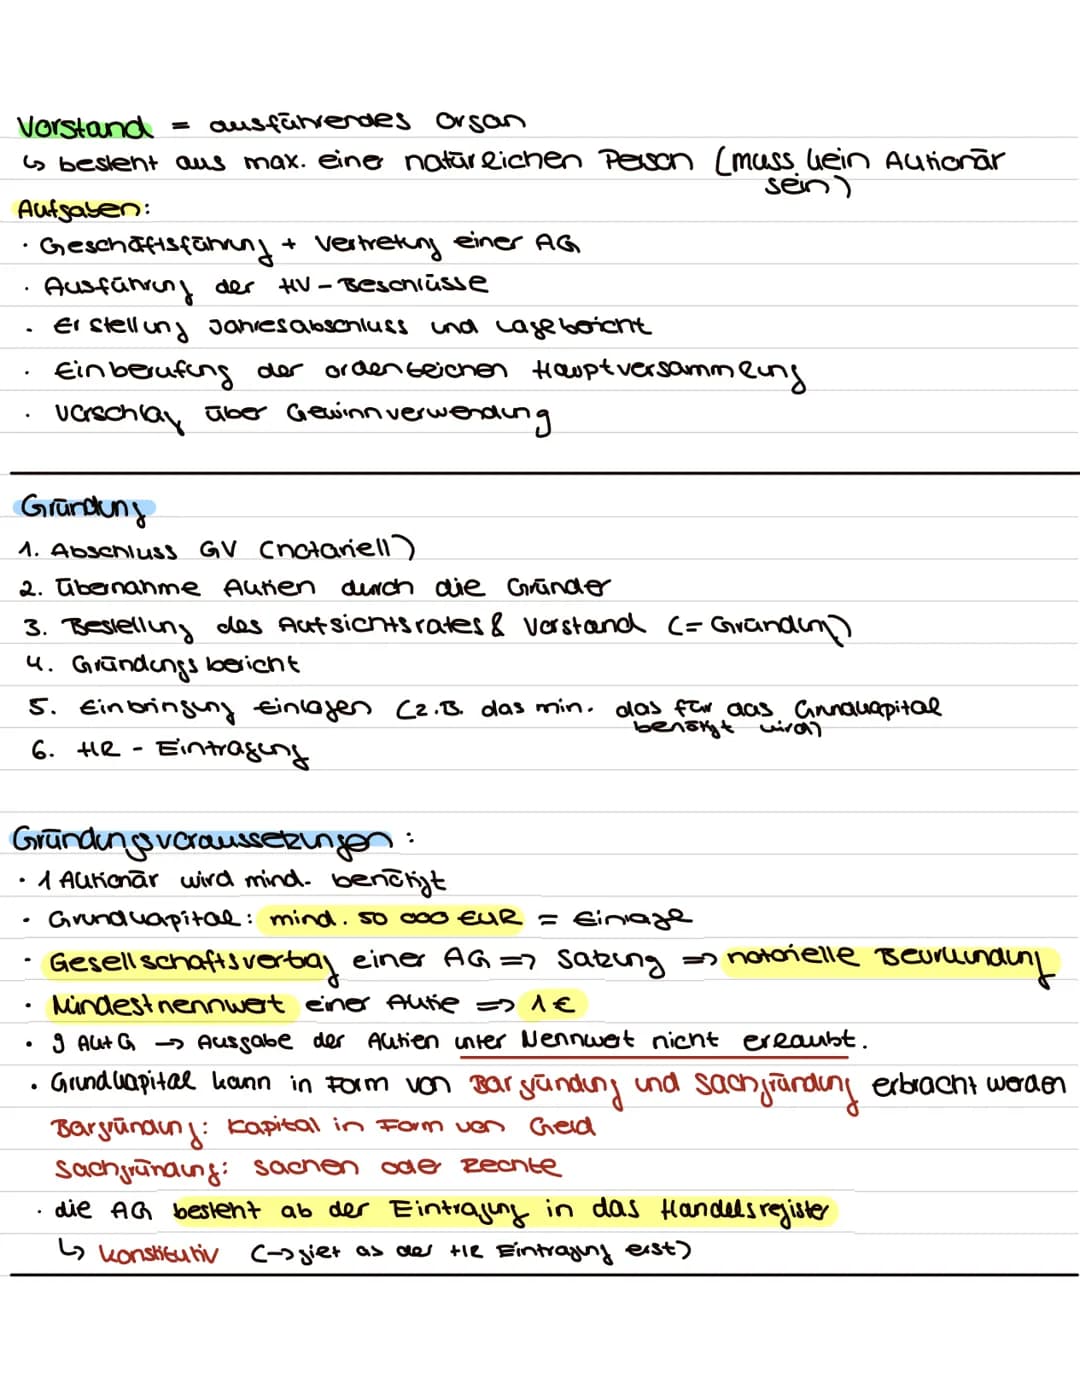 Vorstand = ausführendes Organ
↳ besteht aus max. eine natürlichen Person (muss kein Aktionär sein)
Aufgaben:
· Geschäftsführung + Vertretung einer AG
· Ausführung der HV-Beschlüsse
· Erstellung Jahresabschluss und Lagebericht
· Einberufung der ordentlichen Hauptversammlung
· Vorschlag über Gewinnverwendung
Gründung
1. Abschluss GV (notariell)
2. Übernahme Aktien durch die Gründer
3. Bestellung des Aufsichtsrates & Vorstand (= Gründung)
4. Gründungsbericht
5. Einbringung Einlagen (z.B. das min. das für das Grundkapital benötigt wird)
6. HR - Eintragung
Gründungsvoraussetzungen:
· 1 Aktionär wird mind. benötigt
· Grundkapital: mind. 50 000 EUR = Einlage
· Gesellschaftsvertrag einer AG => Satzung => notarielle Beurkundung
· Mindestnennwert einer Aktie => 1€
· 9 AktG → Ausgabe der Aktien unter Nennwert nicht erlaubt.
· Grundkapital kann in Form von Bargründung und Sachgründung erbracht werden
Bargründung: Kapital in Form von Geld
Sachgründung: Sachen oder Rechte
· die AG besteht ab der Eintragung in das Handelsregister
↳ konstitutiv (→ gilt ab der HR Eintragung erst)